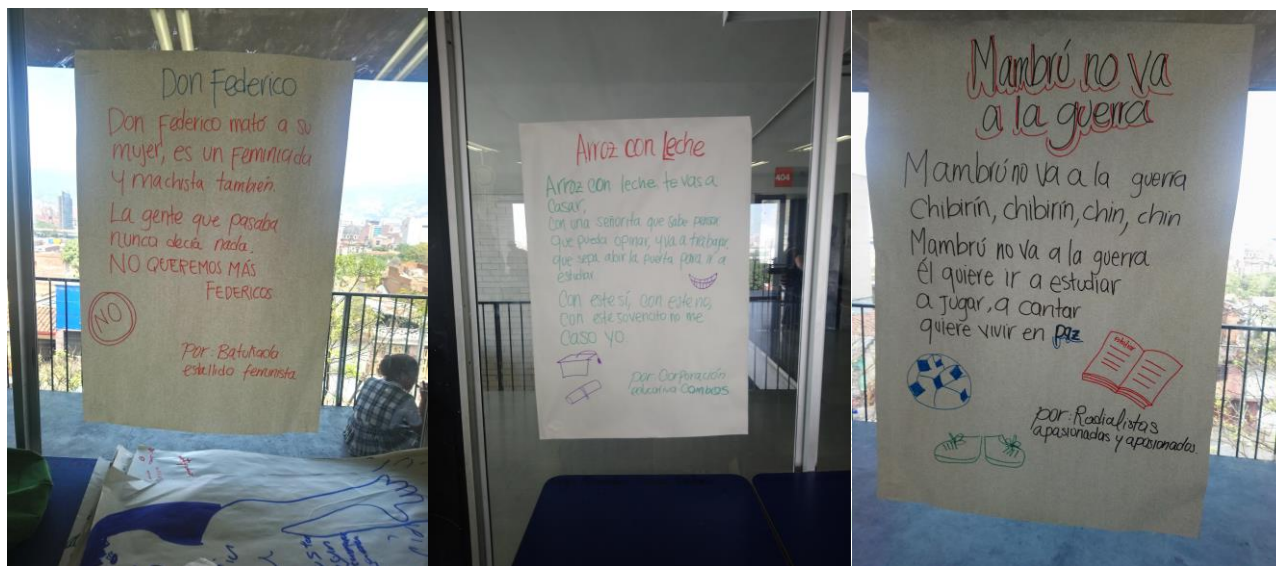 Don Federico
Don Federico mató a su
mujer, es un feminicida
y machista también.
La gente que pasaba
nunca decía nada.
NO QUEREMOS MÁS
FEDERICOS
NO
Por: Batukada
estallido feminista
Arroz con Leche
Arroz con leche te vas a
Casar,
con una señorita que sabe pensar
que pueda opinar, y va a trabajar
que sepa abrir la puerta para ir a
estudiar
Con este sí, con este no,
con este jovencito no me
caso yo
por: Corporación
educativa Combos
404
Mambrú no va
a la guerra
Mambrú no va a la guerra
Chibirín, chibirín, chin, chin
Mambrú no va a la guerra
él quiere ir a estudiar
a jugar, a cantar
quiere vivir en paz
estudiar
por: Radialistas
apasionadas y apasionados.